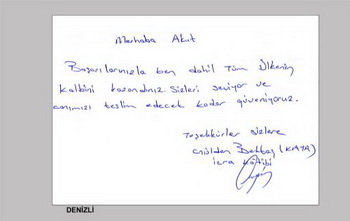 Merhaba Akut
Başarılarınızla ben dahil Tüm Ülkenin
kalbini kazandınız. Sizleri seviyor ve
canımızı teslim edecek kadar güveniyoruz.
Teşekkürler sizlere
Gülden Bektaş (KAYA)
icra kâtibi
DENİZLİ